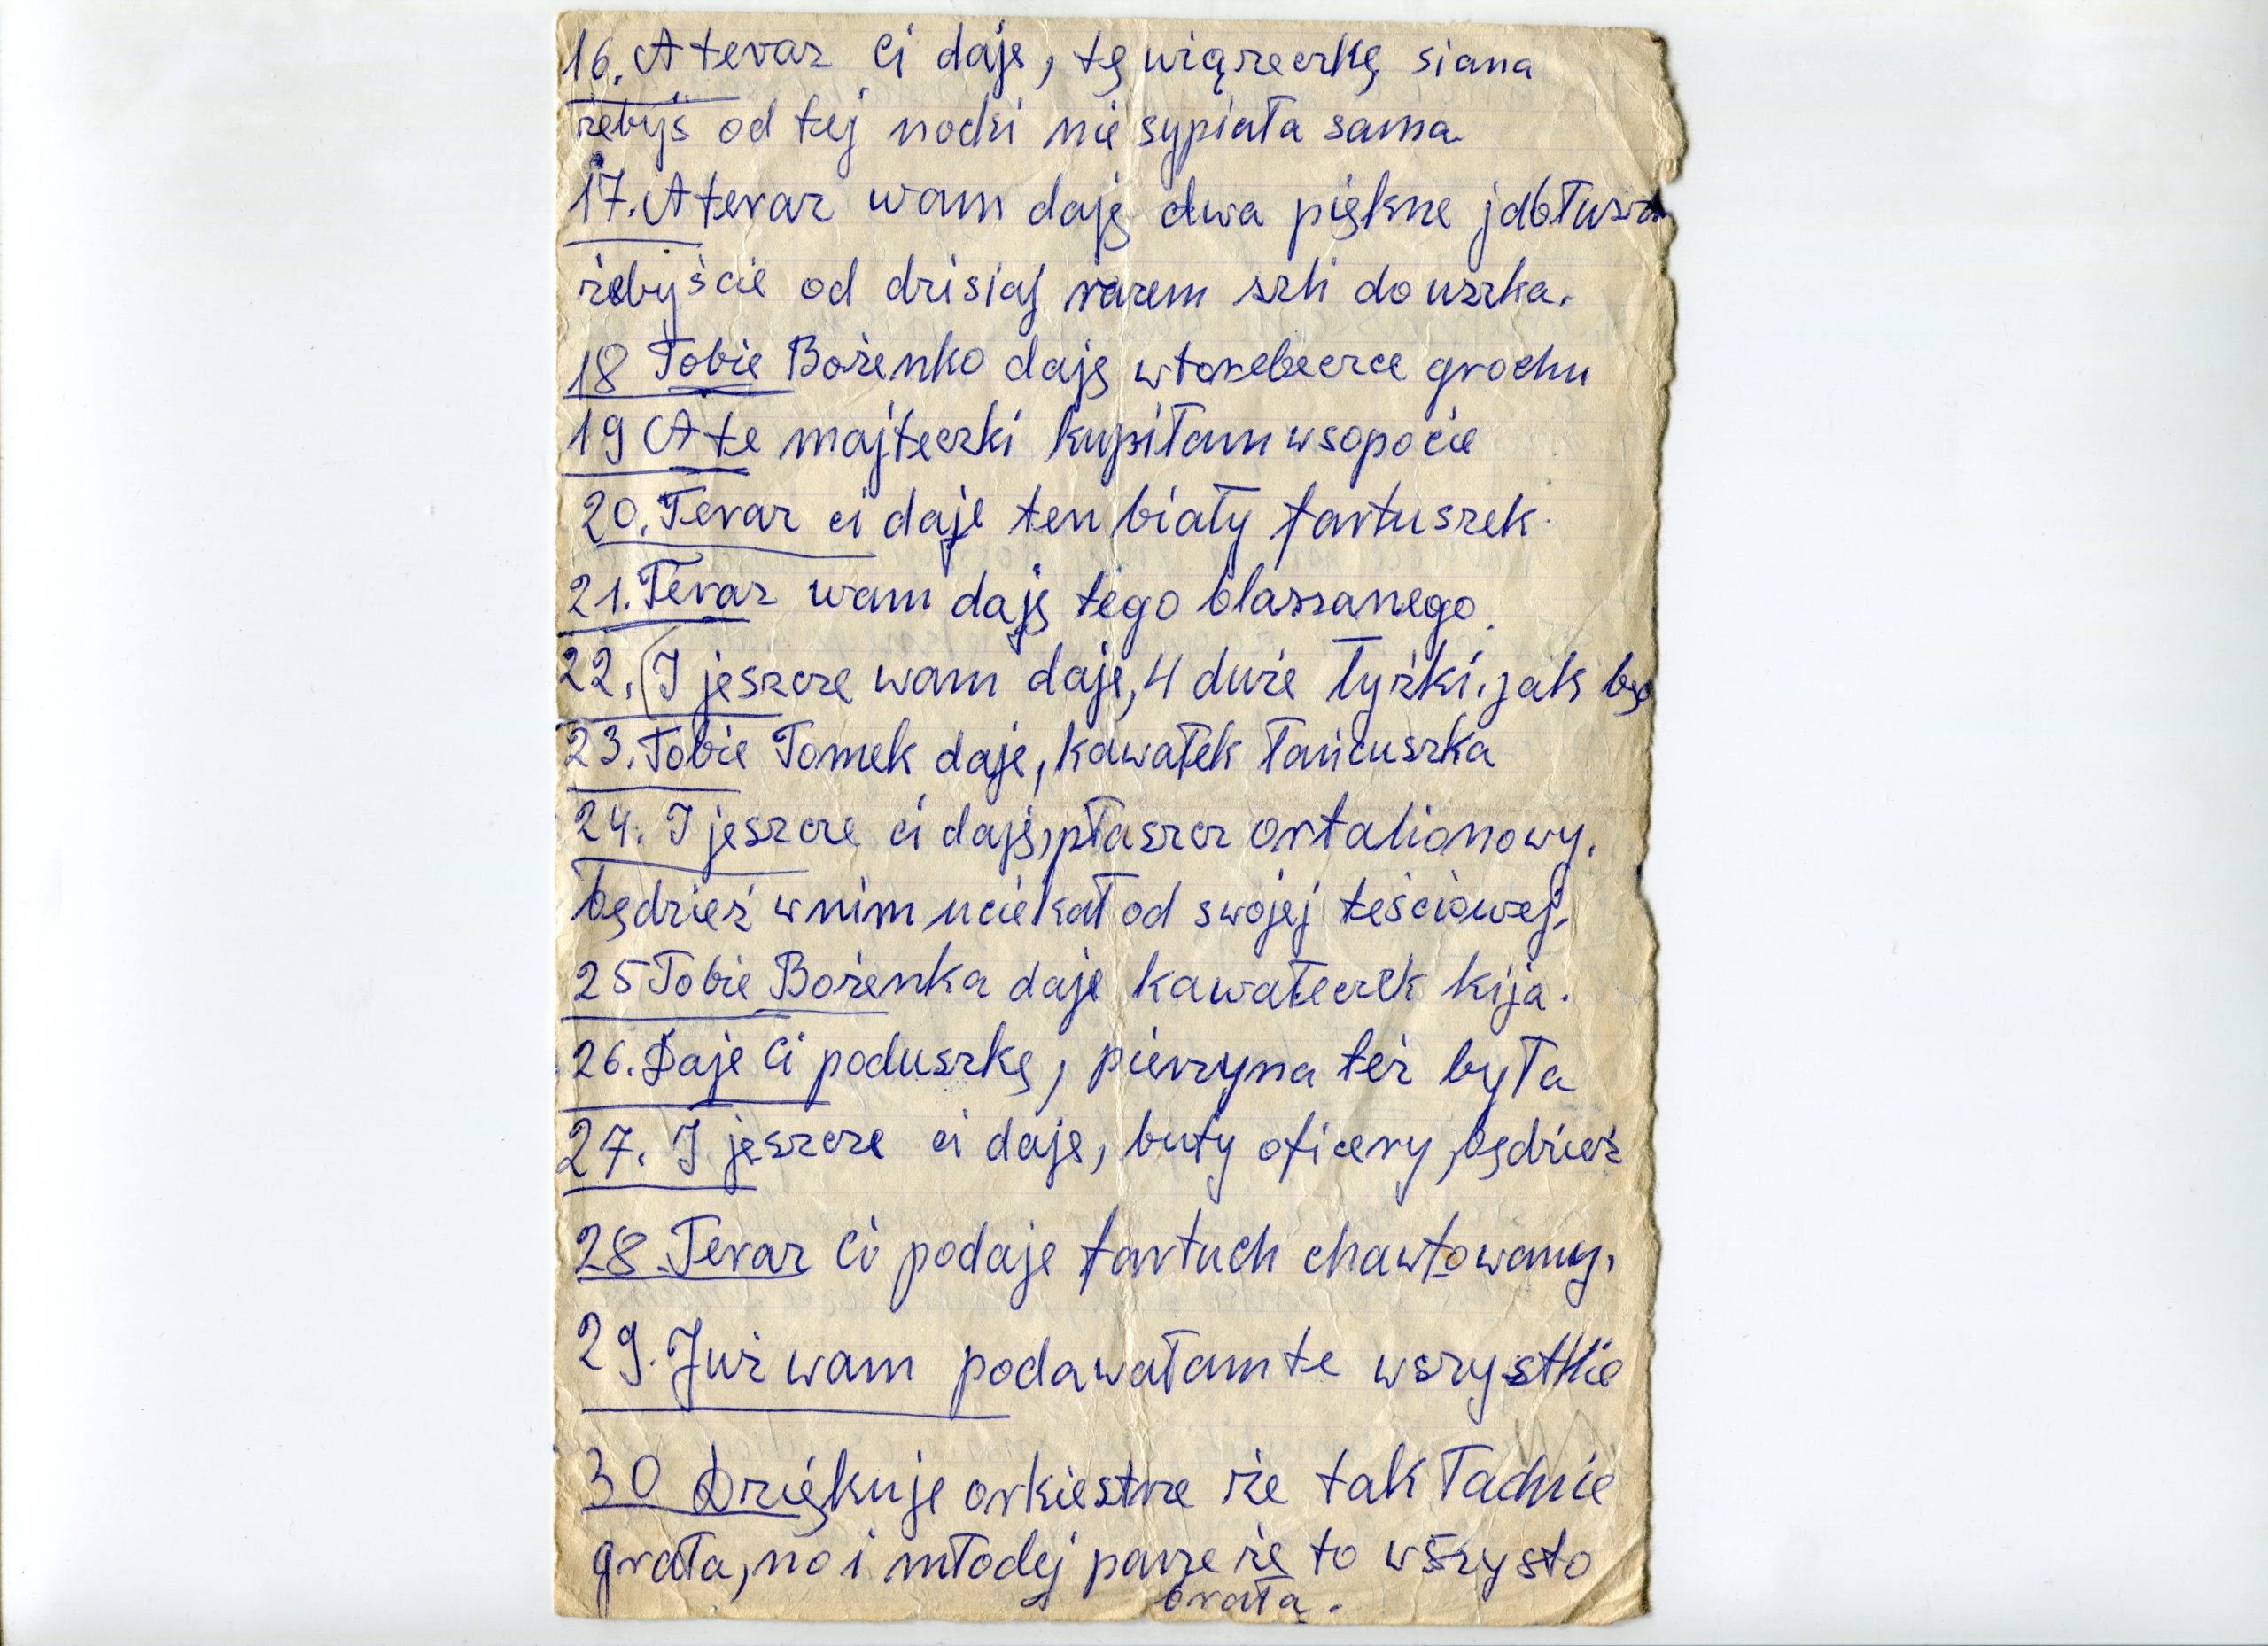 16. A teraz Ci daje, tę wiązeczkę siana
żebyś od tej nocki nie sypiała sama.
17. A teraz wam daję dwa piękne jabłuszka
żebyście od dzisiaj razem szli do uszka.
18 Tobie Bożenko daję w torebeczce grochu
19 A te majteczki kupiłam w sopocie
20. Teraz ci daje ten biały fartuszek.
21. Teraz wam daję tego blaszanego.
22. (I jeszcze wam daje, 4 duże łyżki, jak
23. Tobie Tomek daje, kawałek łańcuszka
24. I jeszcze ci daję, płaszcz ortalionowy.
będzież w nim uciekał od swojej teściowej.
25 Tobie Bożenka daje kawałeczek kija.
26. Daje Ci poduszkę, pierzyna też była
27. I jeszcze ci daje, buty oficery, będzież
28. Teraz Ci podaje fartuch chawtowany.
29. Już wam podawałam te wszystkie
30 Dziękuje orkiestrze że tak ładnie
grała, no i młodej parze że to wszysto
brała.